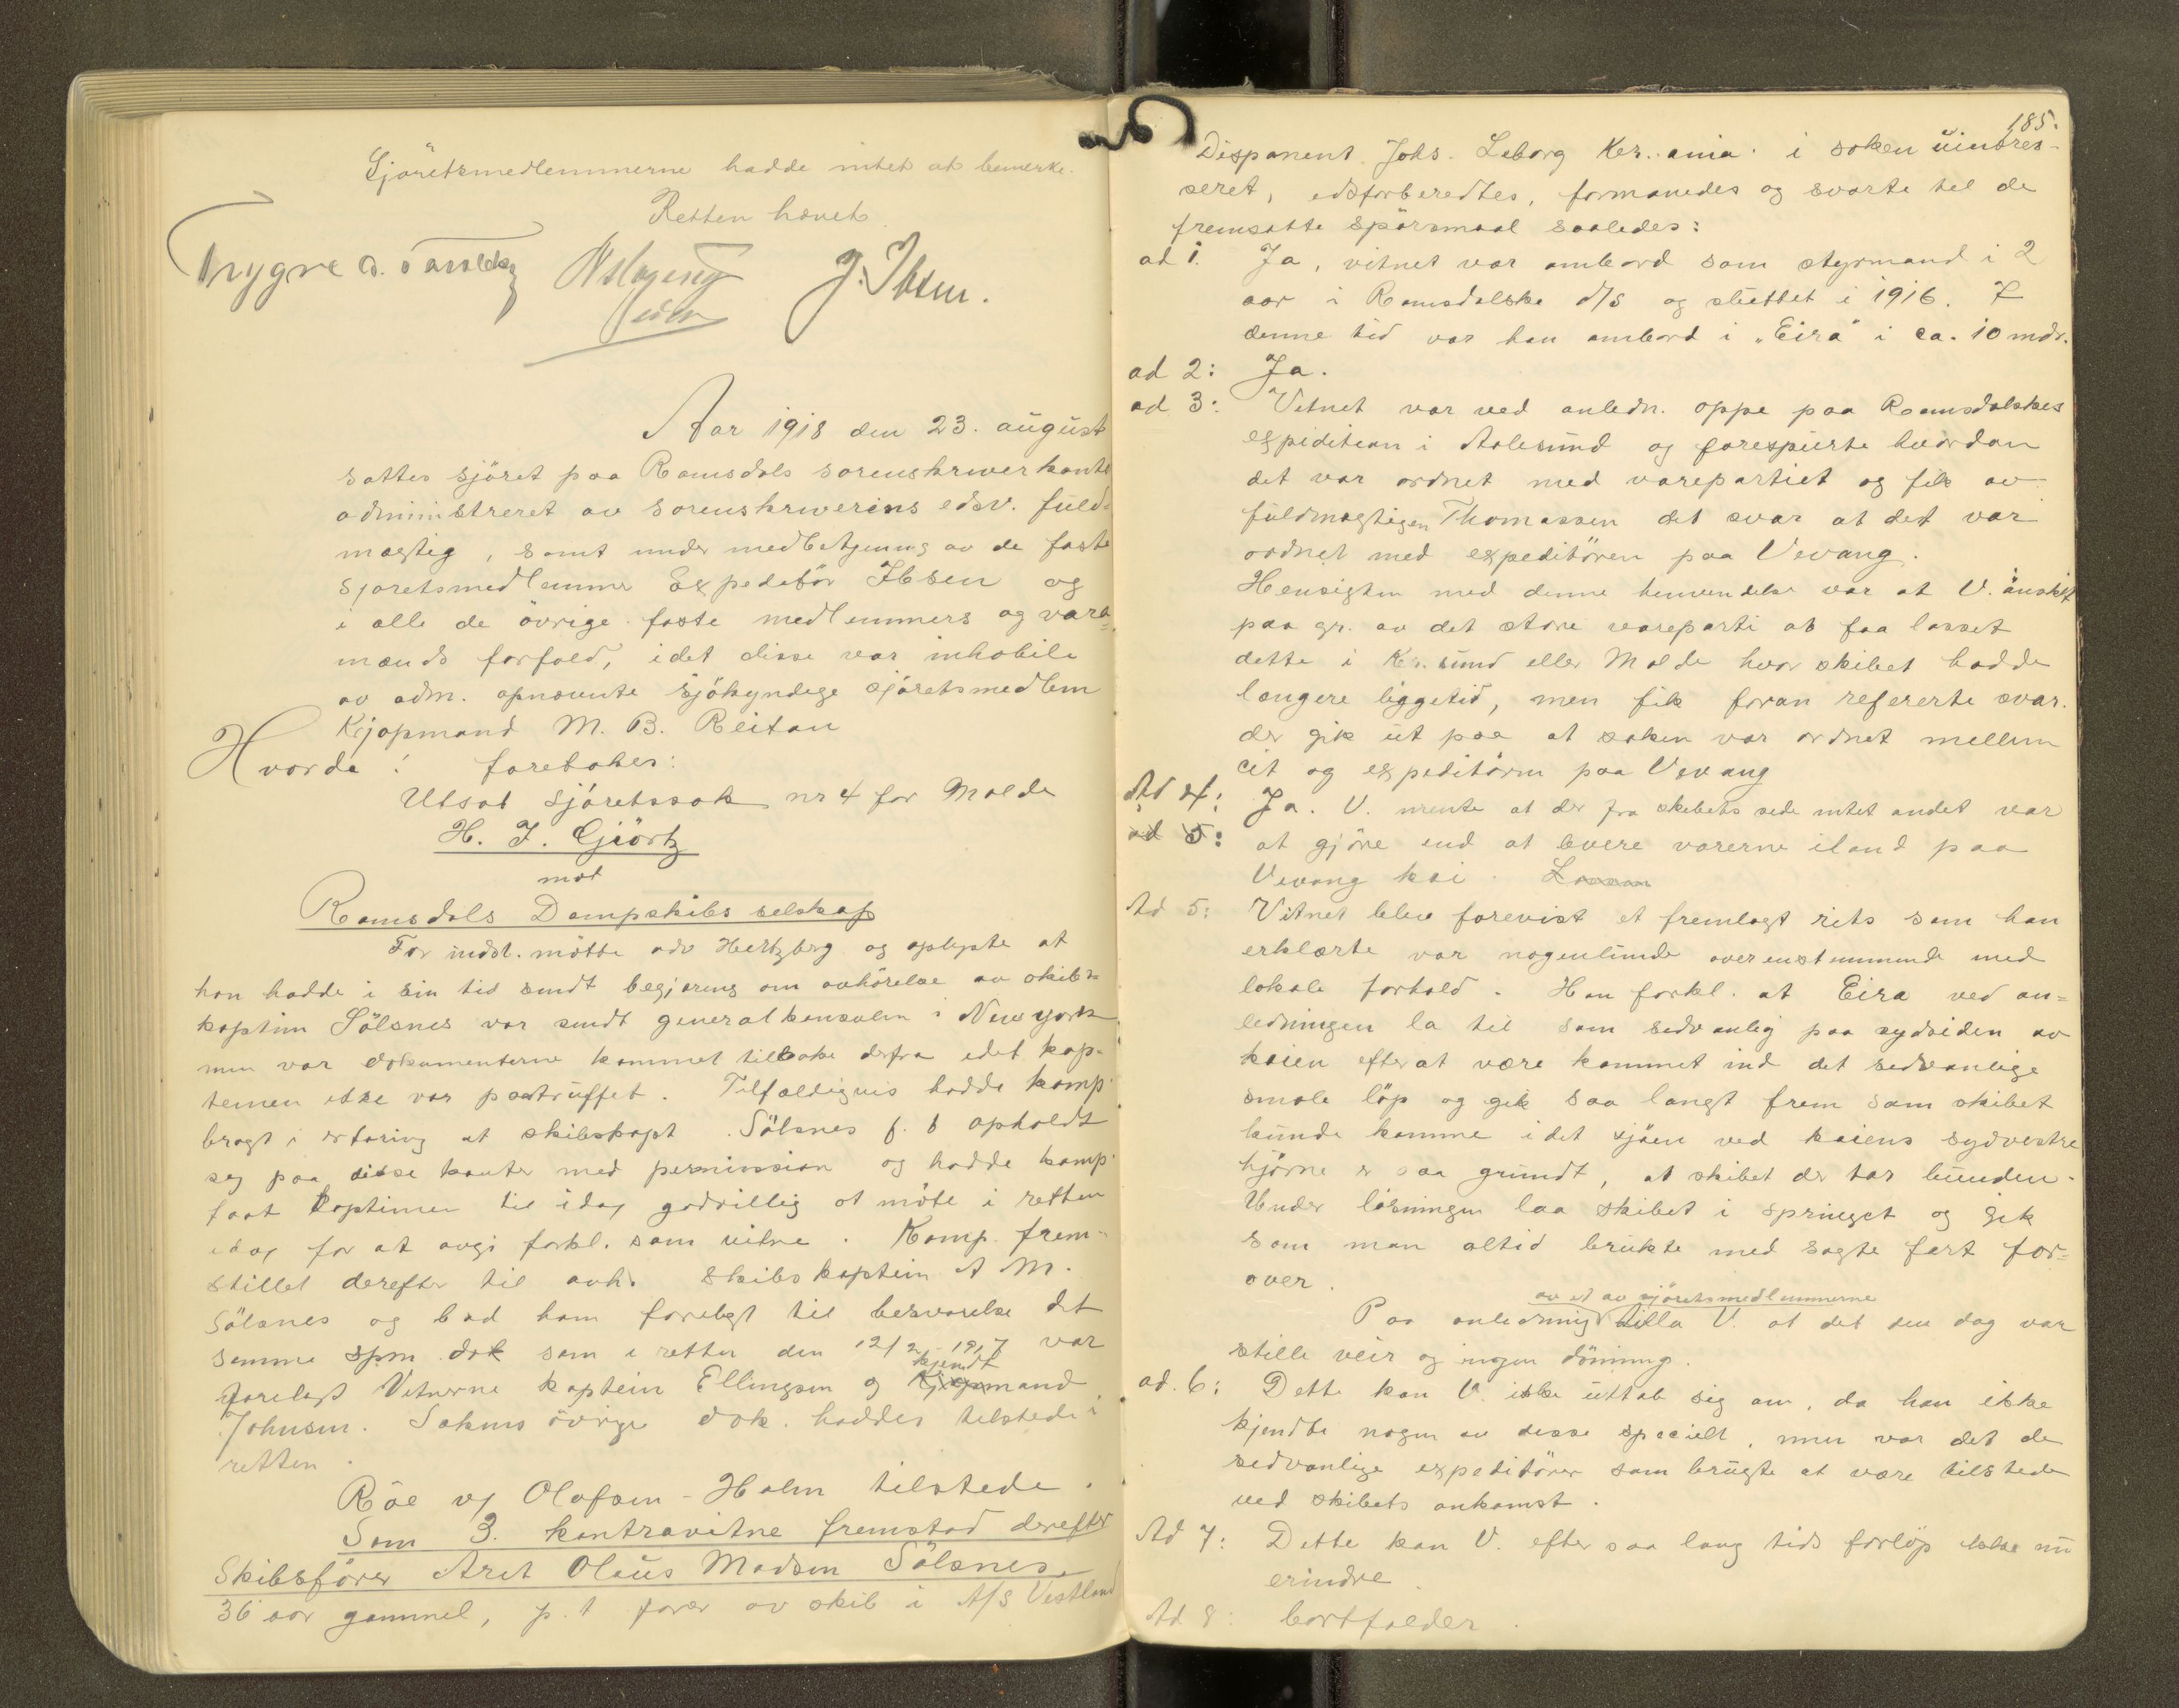 Sjöretsmedlemmerne hadde intet at bemerke.
Retten hævet
J. Ibsen.
Aar 1918 den 23. august
sattes sjöret paa Romsdals sorenskriverkontor
administreret av sorenskriverens edsv. fuld-
mægtig, samt under medbetjening av de faste
sjøretsmedlemmer Expeditör Ibsen og
i alle de övrige faste medlemmers og vara-
mænds forfald, idet disse var inhabile
av adm. opnævnte sjökyndige sjöretsmedlem
Kjøpmand M. B. Reitan
Hvorda: foretokes:
Utsat sjöretssak nr 4 for Molde
H. J. Gjörtz
mot
Romsdals Dampskibsselskap
For indst. mötte adv Hertzberg og oplyste at
han hadde i sin tid sendt begjæring om avhörelse av skibs-
kaptein Sölsnes var sendt generalkonsulen i New york
men var dokumenterne kommet tilbake derfra idet kap-
teinen ikke var paatruffet. Tilfældigvis hadde komp.
bragt i erfaring at skibskapt. Sölsnes f. t opholdt
seg paa disse kanter med permission og hadde komp.
faat kapteinen til idag godvillig at möte i retten
idag for at avgi forkl. som vitne. Komp. frem-
stillet derefter til avh. skibskaptein A M.
Sölsnes og bad ham forelagt til besvarelse det
samme spm. dok som i retten den 12/2 1917 var
forelagt Vitnerne kaptein Ellingsen og kjendtmand
Johnsen. Sakens övrige dok. haddes tilstede i
retten.
Röe og Olafsen-Holm tilstede.
Som 3. kontravitne fremstod derefter
Skibsförer Aret Olaus Madsen Sölsnes
36 aar gammel, p. t förer av skib i A/S Vestland
185.
Disponent Johs. Leborg Kr.ania i saken uintres-
seret, edsforberedtes, formanedes og svarte til de
fremsatte spörsmaal saaledes:
ad 1. Ja, vitnet var ombord som styrmand i 2
aar i Romsdalske d/s og sluttet i 1916. I
denne tid var han ombord i "Eira" i ca. 10 mdr.
ad 2: Ja.
ad 3: Vitnet var ved anledn. oppe paa Romsdalskes
expidition i Aalesund og forespurte hvordan
det var ordnet med varepartiet og fik av
fuldmægtigen Thomassen det svar at det var
ordnet med expeditören paa Vevang.
Hensigten med denne henvendelse var at V. önsket
paa gr. av det store vareparti at faa losset
dette i Kr.sund eller Molde hvor skibet hadde
længere liggetid, men fik foran refererte svar.
der gik ut paa at saken var ordnet mellem
cit og expeditören paa Vevang
Ad 4: Ja. V. mente at der fra skibets side intet andet var
ad 5: at gjöre end at levere varerne iland paa
Vevang kai.
Ad 5: Vitnet blev forevist et fremlagt rits som han
erklærte var nogenlunde overenstemmende med
lokale forhold. Han forkl. at Eira ved an=
ledningen la til som sedvanlig paa sydsiden av
kaien efter at være kommet ind det sedvanlige
smale löp og gik saa langt frem som skibet
kunde komme idet sjöen ved kaiens sydvestre
hjörne er saa grundt, at skibet der tar bunden.
Under lösningen laa skibet i springet og gik
som man altid brukte med sagte fart for=
over.
av et av sjöretsmedlemmerne
Paa anledning tilla V. at det den dag var
stille veir og ingen dönning.
ad. 6: Dette kan V. ikke uttale sig om, da han ikke
kjendte nogen av disse specielt, men var det de
sedvanlige expeditörer som brugte at være tilstede
ved skibets ankomst.
Ad 7: Dette kan V. efter saa lang tids forlöp ikke nu
erindre.
Ad 8: bortfalder.